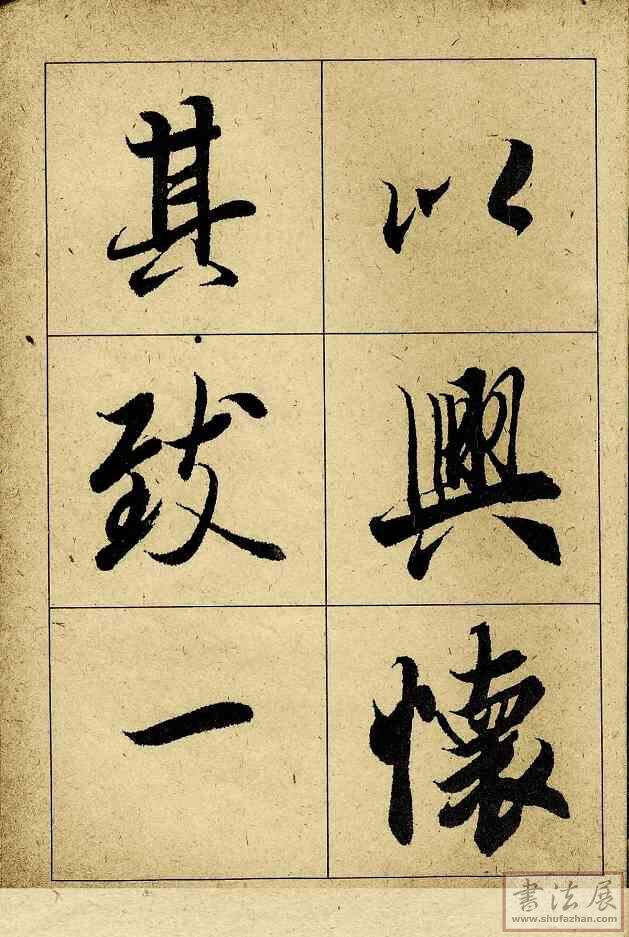 以興懷
其致一
書法展
www.shufazhan.com